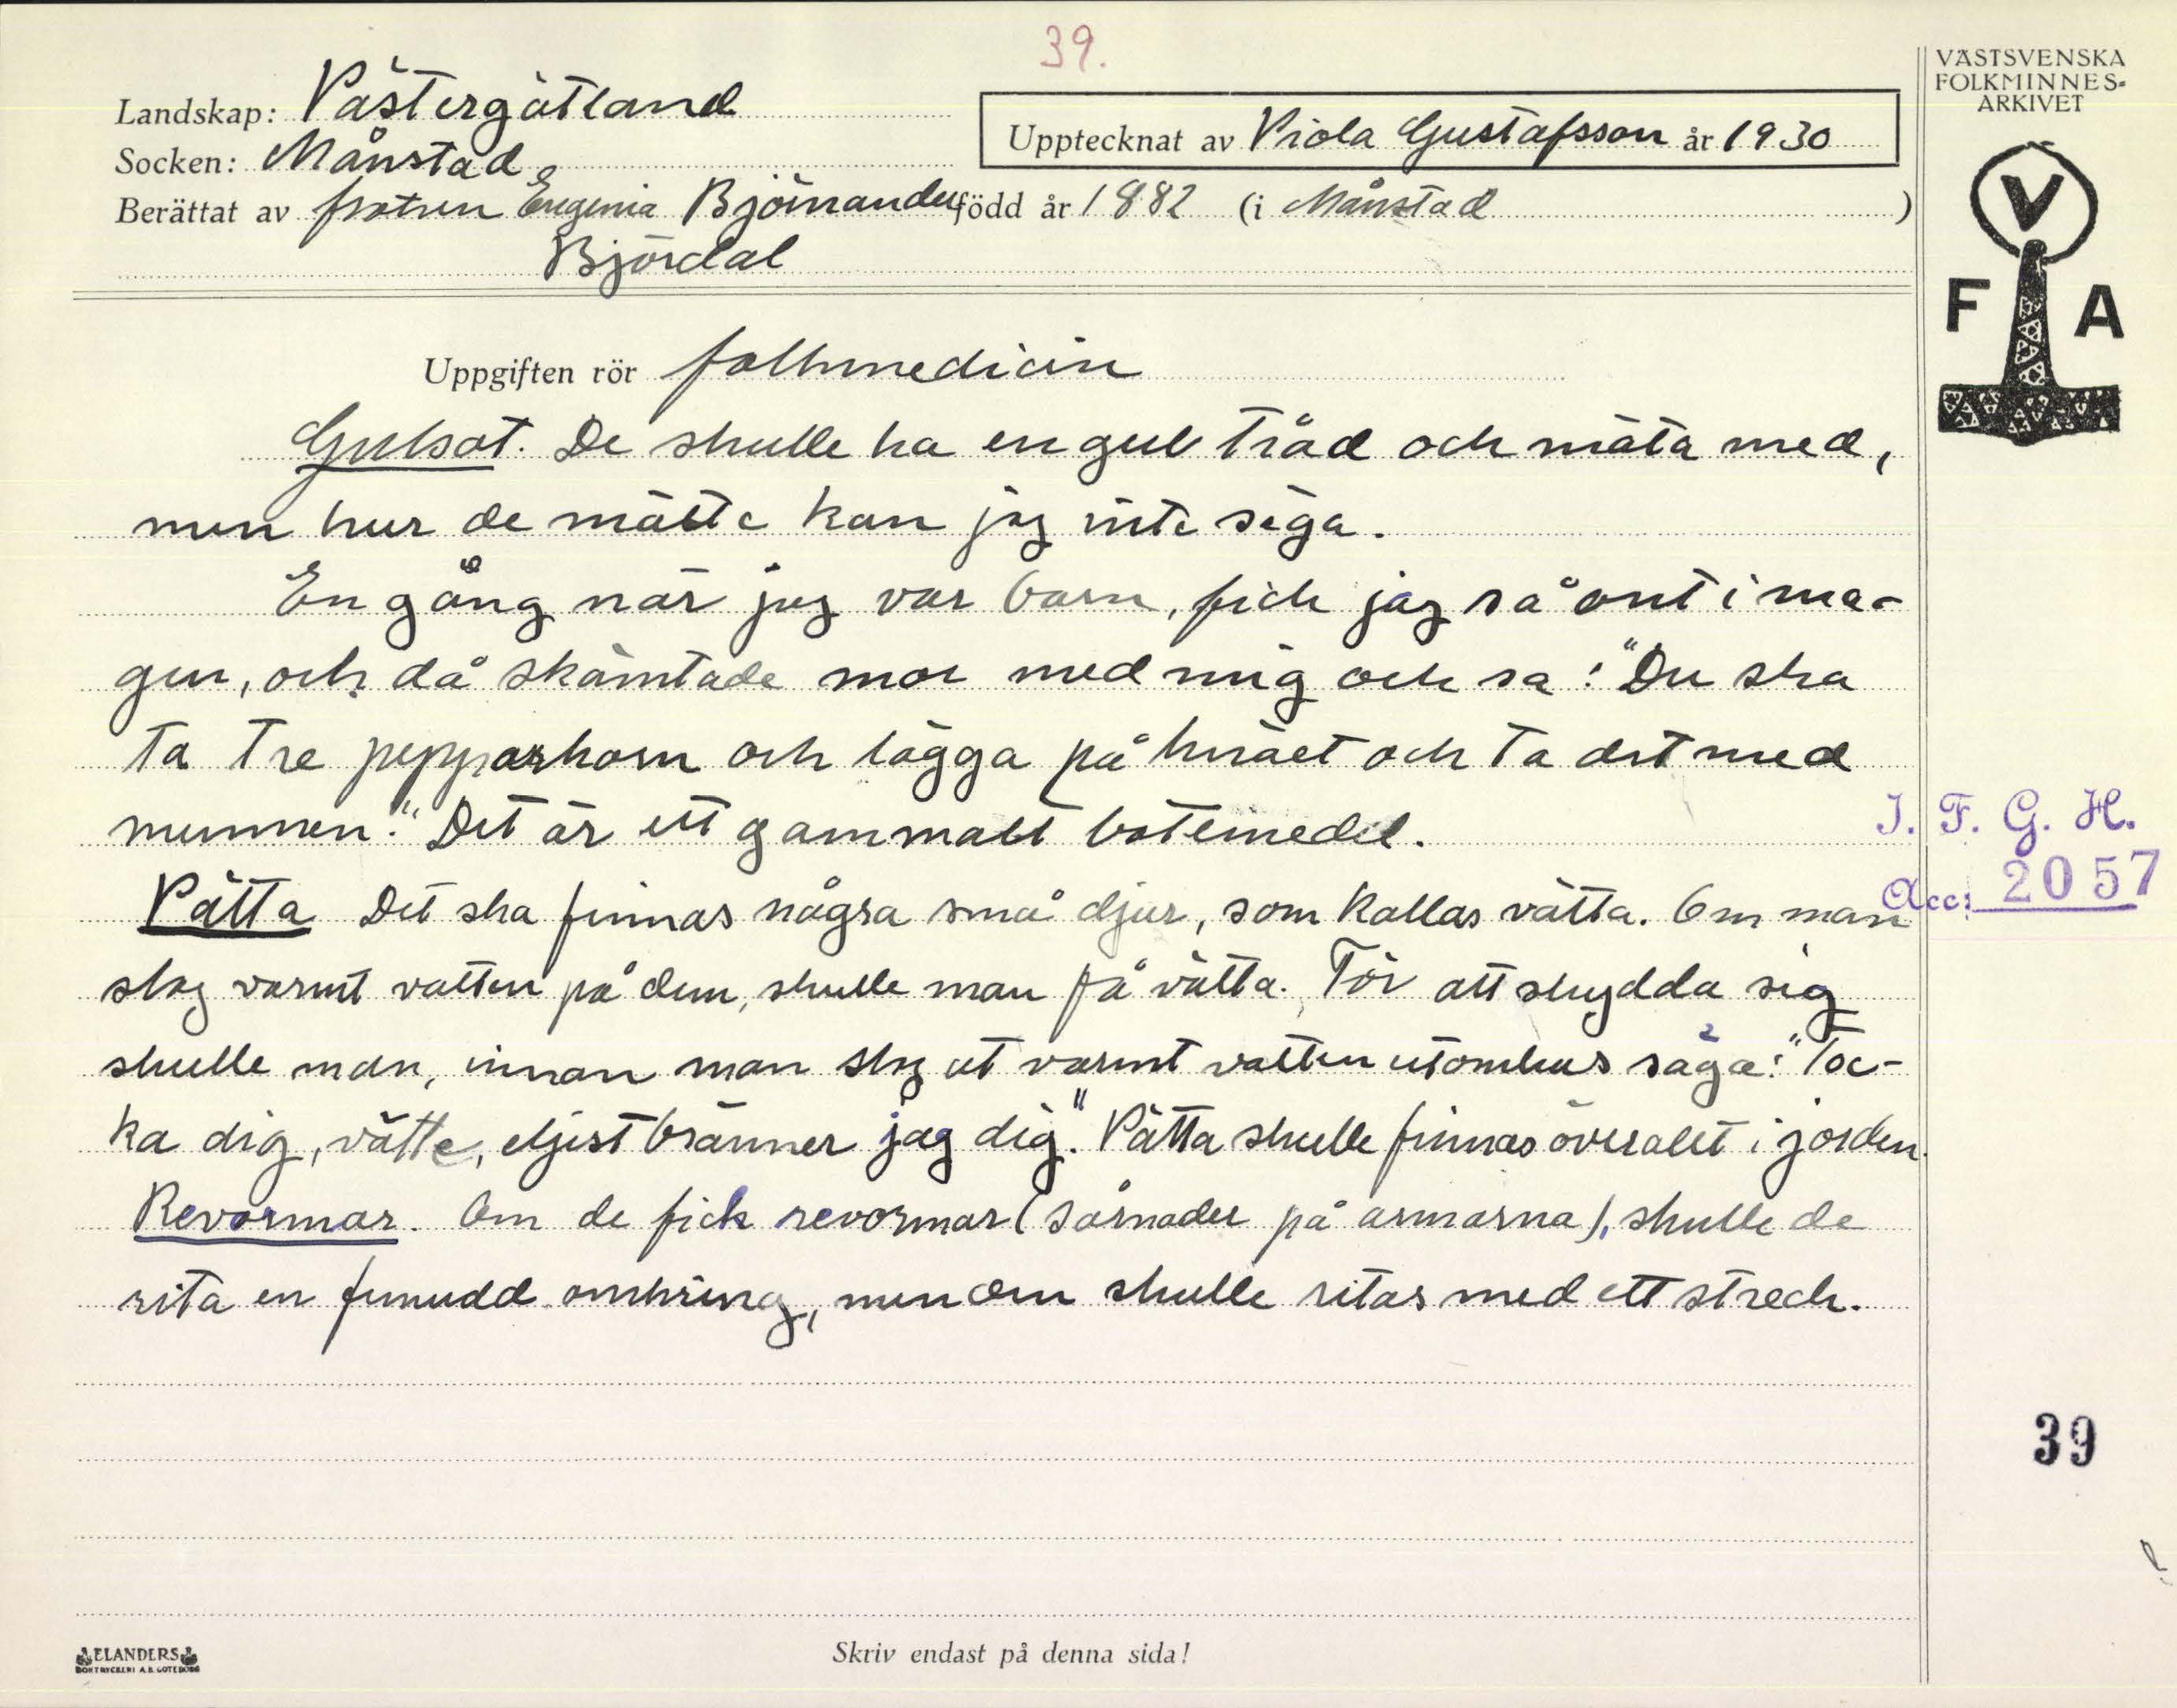 39.
VÄSTSVENSKA
FOLKMINNES-
ARKIVET
Landskap: Västergötland
Upptecknat av Viola Gustafsson år 1930
Socken: Månstad
Berättat av fru Eugenia Björnander född år 1882 (i Månstad )
Björdal
V
F A
Uppgiften rör folkmedicin
Gulsot. De skulle ha en gul tråd och mäta med,
men hur de mätte kan jag inte säga.
En gång när jag var barn, fick jag så ont i ma-
gen, och då skämtade mor med mig och sa: "Du ska
ta tre pepparkorn och lägga på knäet och ta det med
munnen." Det är ett gammalt botemedel.
I. F. G. H.
Acc: 2057
Vätta Det ska finnas några små djur, som kallas vätta. Om man
slog varmt vatten på dem, skulle man få vätta. För att skydda sig
skulle man, innan man slog ut varmt vatten utomhus säga: "Toc-
ka dig, vätte, eljest bränner jag dig." Vätta skulle finnas överallt i jorden.
Revormar. Om de fick revormar (sårnader på armarna), skulle de
rita en femudd omkring, men den skulle ritas med ett streck.
39
ELANDERS
BOKTRYCKERI A.B. GÖTEBORG
Skriv endast på denna sida!